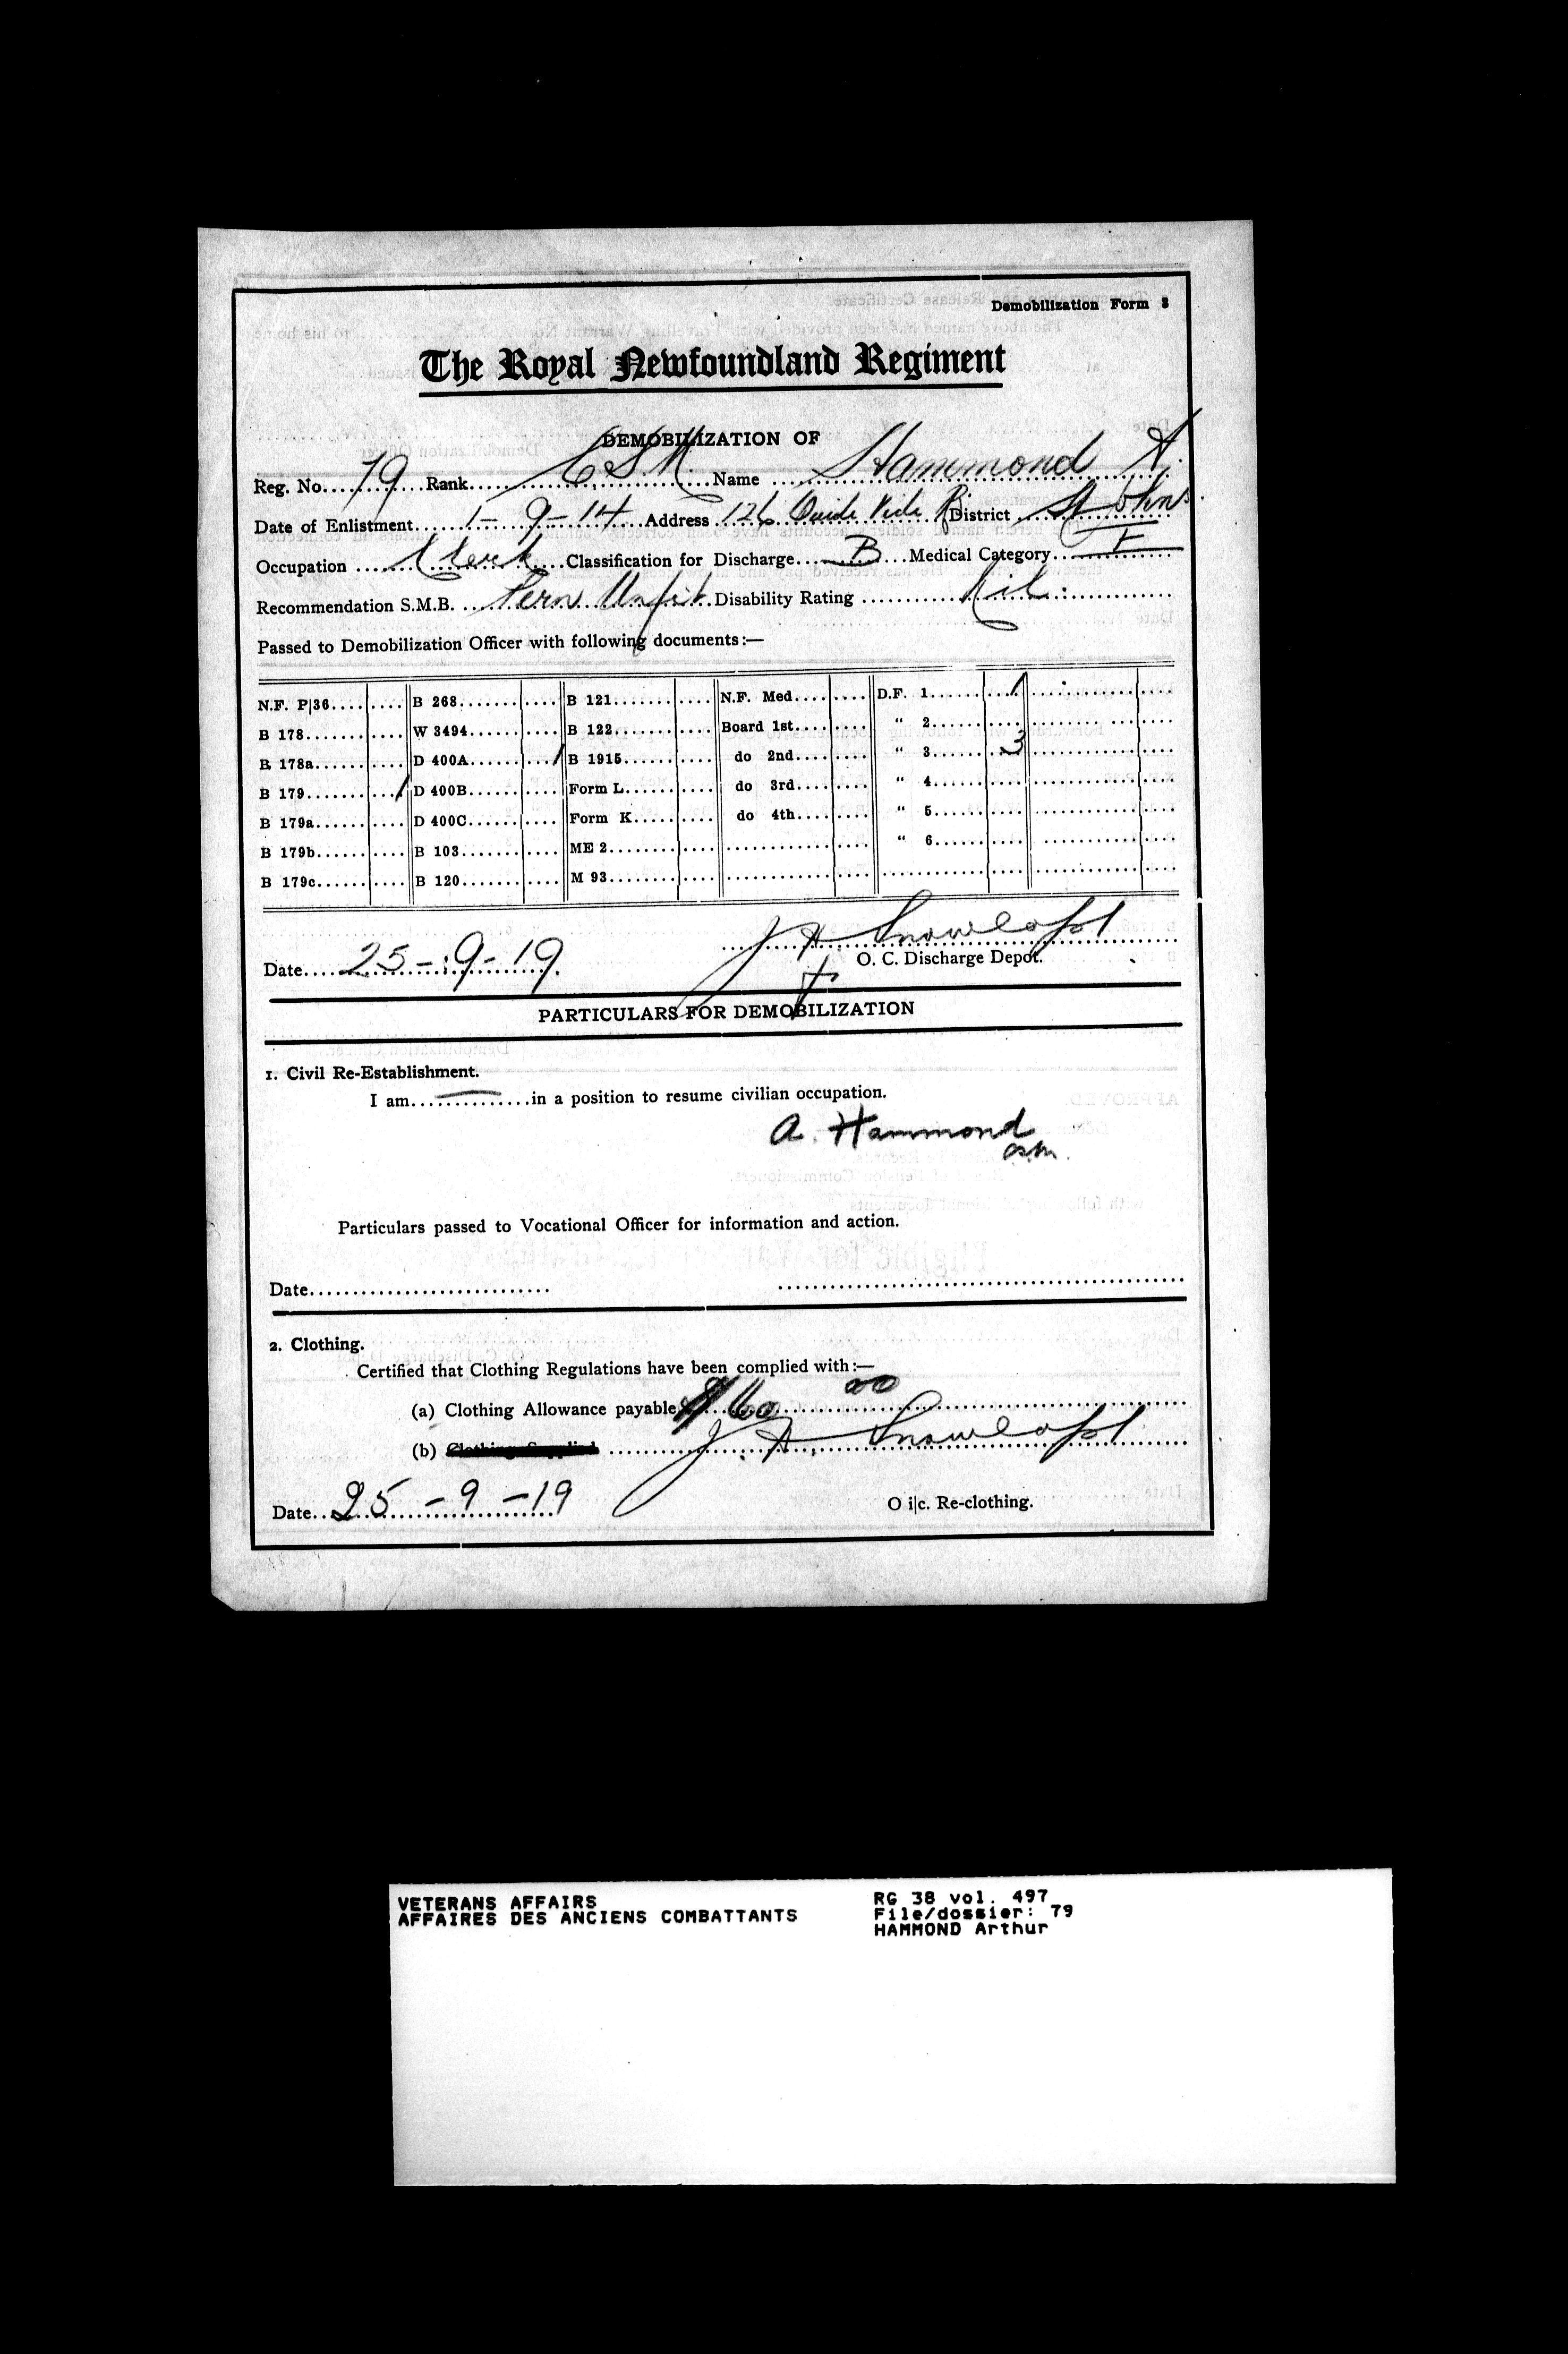 Demobilization Form 3
The Royal Newfoundland Regiment
DEMOBILIZATION OF
Reg. No. 79 Rank C.S.M. Name Hammond A.
Date of Enlistment 1-9-14 Address 126 Quidi Vidi R District St Johns
Occupation Clerk Classification for Discharge B Medical Category E
Recommendation S.M.B. Perm Unfit Disability Rating Nil.
Passed to Demobilization Officer with following documents:—
N.F. P|36 B 268 B 121 N.F. Med. D.F. 1 1
B 178 W 3494 B 122 Board 1st " 2
B 178a D 400A 1 B 1915 do 2nd " 3 3
B 179 1 D 400B Form L do 3rd " 4
B 179a D 400C Form K do 4th " 5
B 179b B 103 ME 2 " 6
B 179c B 120 M 93
Date 25-9-19
O. C. Discharge Depot.
PARTICULARS FOR DEMOBILIZATION
1. Civil Re-Establishment.
I am in a position to resume civilian occupation.
A. Hammond
CSM.
Particulars passed to Vocational Officer for information and action.
Date
2. Clothing.
Certified that Clothing Regulations have been complied with:—
(a) Clothing Allowance payable $60 00
(b) Clothing Supplied
Date 25-9-19
O i|c. Re-clothing.
VETERANS AFFAIRS RG 38 vol. 497
AFFAIRES DES ANCIENS COMBATTANTS File/dossier: 79
HAMMOND Arthur